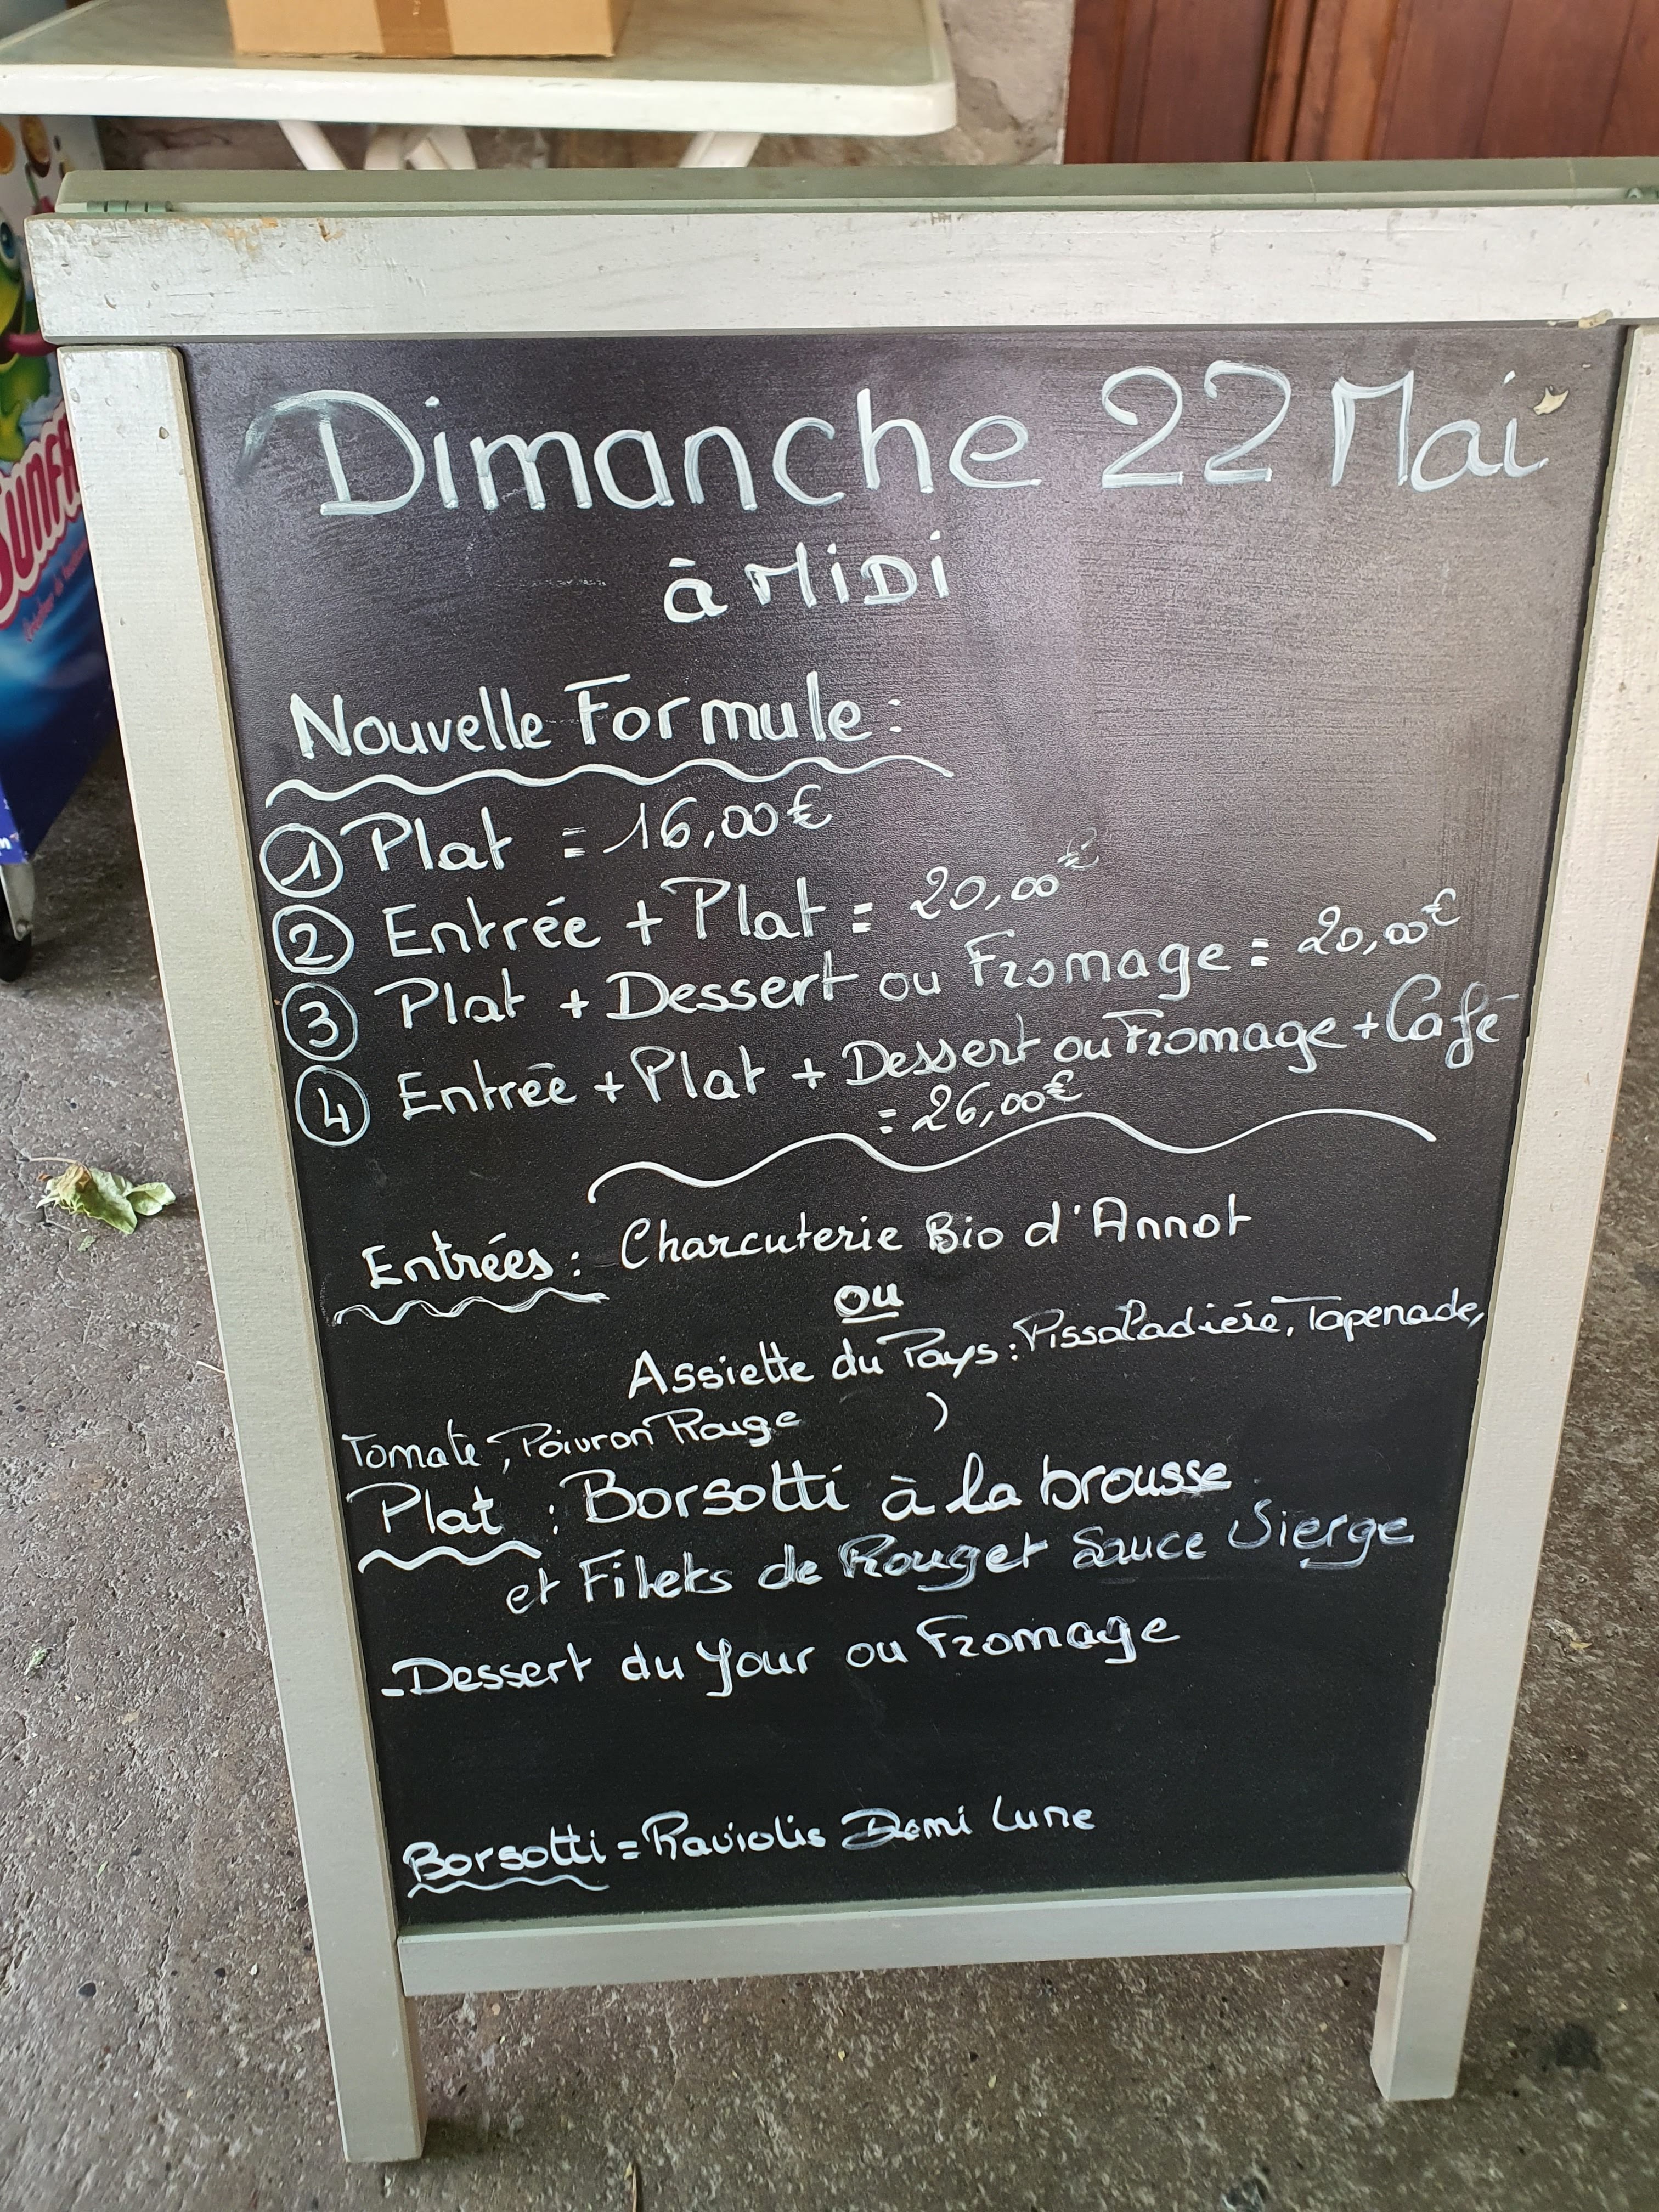 Dimanche 22 Mai
à MiDi
Nouvelle Formule:
1 Plat = 16,00€
2 Entrée + Plat = 20,00€
3 Plat + Dessert ou Fromage = 20,00€
4 Entrée + Plat + Dessert ou Fromage + Café
= 26,00€
Entrées : Charcuterie Bio d'Annot
ou
Assiette du Pays : Pissaladière, Tapenade,
Tomate, Poivron Rouge )
Plat : Borsotti à la brousse
et Filets de Rouget Sauce Vierge
- Dessert du Jour ou Fromage
Borsotti = Raviolis Demi Lune